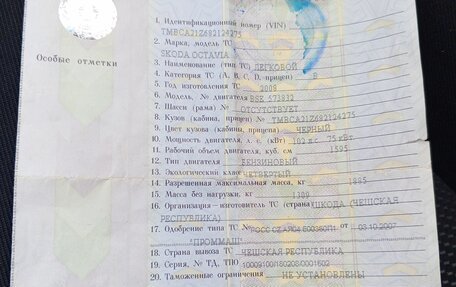 Особые отметки
1. Идентификационный номер (VIN)
TMBCA21Z682124275
2. Марка, модель ТС
SKODA OCTAVIA
3. Наименование (тип ТС) ЛЕГКОВОЙ
4. Категория ТС (А, В, С, D, прицеп) B
5. Год изготовления ТС 2008
6. Модель, № двигателя BSE 573832
7. Шасси (рама) № ОТСУТСТВУЕТ
8. Кузов (кабина, прицеп) № TMBCA21Z682124275
9. Цвет кузова (кабины, прицепа) ЧЕРНЫЙ
10. Мощность двигателя, л. с. (кВт) 102 л.с. 75 кВт.
11. Рабочий объем двигателя, куб. см 1595
12. Тип двигателя БЕНЗИНОВЫЙ
13. Экологический класс ЧЕТВЕРТЫЙ
14. Разрешенная максимальная масса, кг 1885
15. Масса без нагрузки, кг 1389
16. Организация—изготовитель ТС (страна) ШКОДА (ЧЕШСКАЯ
РЕСПУБЛИКА)
17. Одобрение типа ТС № РОСС CZ. 03.10.2007
"ПРОММАШ"
18. Страна вывоза ТС ЧЕШСКАЯ РЕСПУБЛИКА
19. Серия, № ТД, ТПО 10009100/180208/0001602
20. Таможенные ограничения НЕ УСТАНОВЛЕНЫ